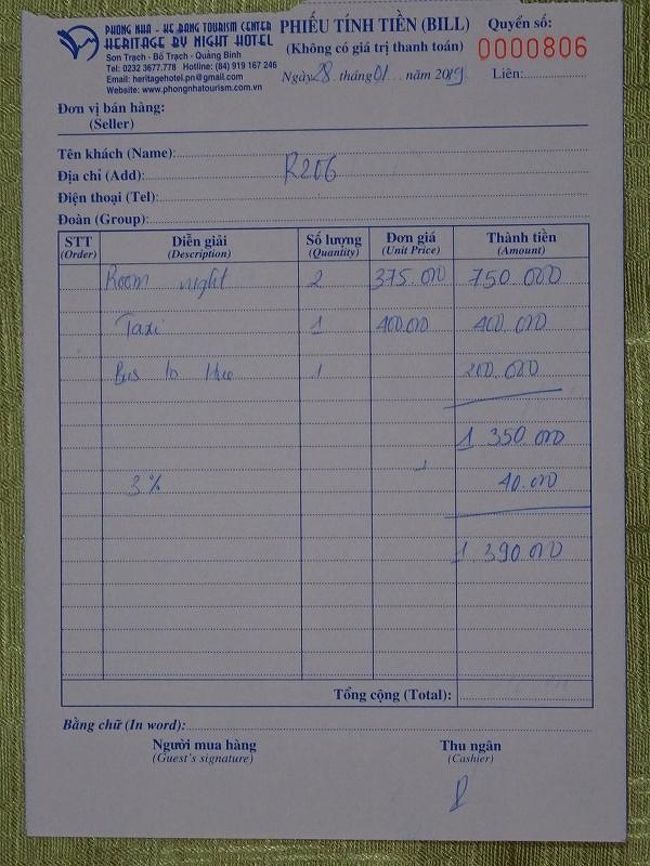 PHONG NHA - KE BANG TOURISM CENTER
HERITAGE BY NIGHT HOTEL
Sơn Trạch - Bố Trạch - Quảng Bình
Tel: 0232 3677.778 Hotline: (84) 919 167 246
Email: heritagehotel.pn@gmail.com
Website: www.phongnhatourism.com.vn
PHIẾU TÍNH TIỀN (BILL)
(Không có giá trị thanh toán)
Ngày 28 tháng 01 năm 2019
Quyển số:
0000806
Liên:
Đơn vị bán hàng:
(Seller)
Tên khách (Name):
Địa chỉ (Add): R206
Điện thoại (Tel):
Đoàn (Group):
STT Diễn giải Số lượng Đơn giá Thành tiền
(Order) (Description) (Quantity) (Unit Price) (Amount)
Room night 2 375.000 750.000
Taxi 1 400.000 400.000
Bus to Hue 1 200.000
1 350.000
3% 40.000
1 390.000
Tổng cộng (Total):
Bằng chữ (In word):
Người mua hàng Thu ngân
(Guest's signature) (Cashier)